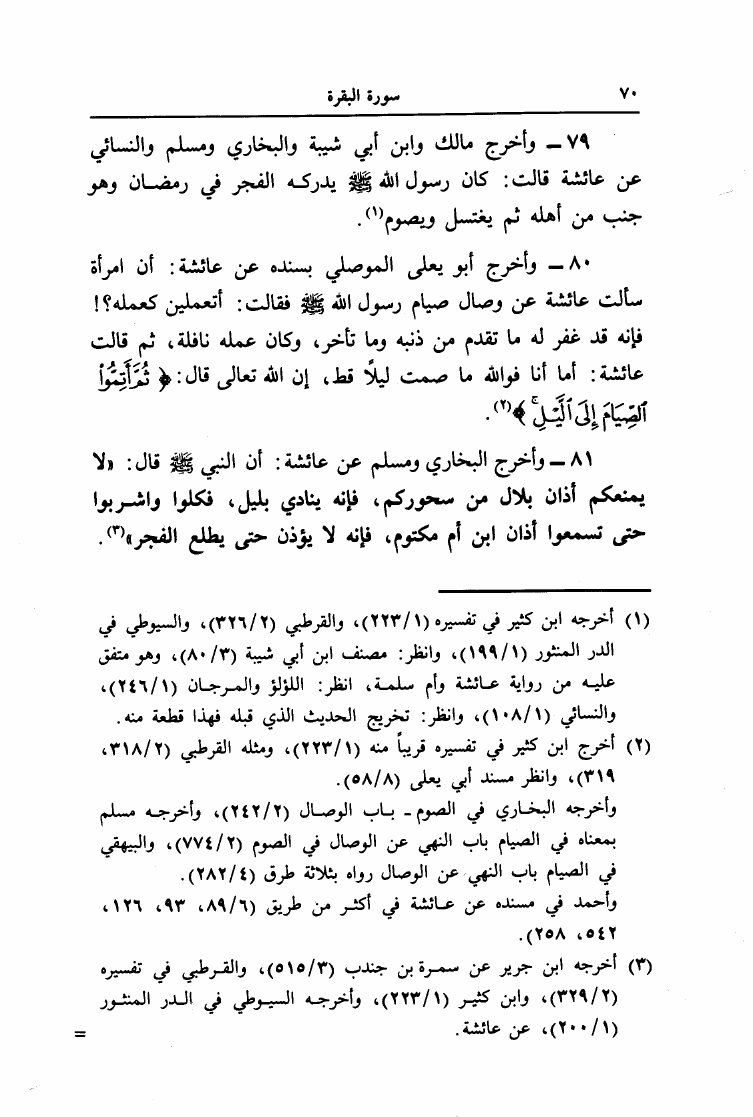 ٧٠ سورة البقرة
٧٩ ـ وأخرج مالك وابن أبي شيبة والبخاري ومسلم والنسائي
عن عائشة قالت: كان رسول الله ﷺ يدركه الفجر في رمضان وهو
جنب من أهله ثم يغتسل ويصوم(١).
٨٠ ـ وأخرج أبو يعلى الموصلي بسنده عن عائشة: أن امرأة
سألت عائشة عن وصال صيام رسول الله ﷺ فقالت: أتعملين كعمله؟!
فإنه قد غفر له ما تقدم من ذنبه وما تأخر، وكان عمله نافلة، ثم قالت
عائشة: أما أنا فوالله ما صمت ليلاً قط، إن الله تعالى قال: ﴿ ثُمَّ أَتِمُّوا۟
ٱلصِّيَامَ إِلَى ٱلَّيْلِ ۚ ﴾(٢).
٨١ ـ وأخرج البخاري ومسلم عن عائشة: أن النبي ﷺ قال: «لا
يمنعكم أذان بلال من سحوركم، فإنه ينادي بليل، فكلوا واشربوا
حتى تسمعوا أذان ابن أم مكتوم، فإنه لا يؤذن حتى يطلع الفجر»(٣).
(١) أخرجه ابن كثير في تفسيره (٢٢٣/١)، والقرطبي (٣٢٦/٢)، والسيوطي في
الدر المنثور (١٩٩/١)، وانظر: مصنف ابن أبي شيبة (٨٠/٣)، وهو متفق
عليه من رواية عائشة وأم سلمة، انظر: اللؤلؤ والمرجان (٢٤٦/١)،
والنسائي (١٠٨/١)، وانظر: تخريج الحديث الذي قبله فهذا قطعة منه.
(٢) أخرج ابن كثير في تفسيره قريباً منه (٢٢٣/١)، ومثله القرطبي (٣١٨/٢،
٣١٩)، وانظر مسند أبي يعلى (٥٨/٨).
وأخرجه البخاري في الصوم ـ باب الوصال (٢٤٢/٢)، وأخرجه مسلم
بمعناه في الصيام باب النهي عن الوصال في الصوم (٧٧٤/٢)، والبيهقي
في الصيام باب النهي عن الوصال رواه بثلاثة طرق (٢٨٢/٤).
وأحمد في مسنده عن عائشة في أكثر من طريق (٨٩/٦، ٩٣، ١٢٦،
٥٤٢، ٢٥٨).
(٣) أخرجه ابن جرير عن سمرة بن جندب (٥١٥/٣)، والقرطبي في تفسيره
(٣٢٩/٢)، وابن كثير (٢٢٣/١)، وأخرجه السيوطي في الدر المنثور
(٢٠٠/١)، عن عائشة. =